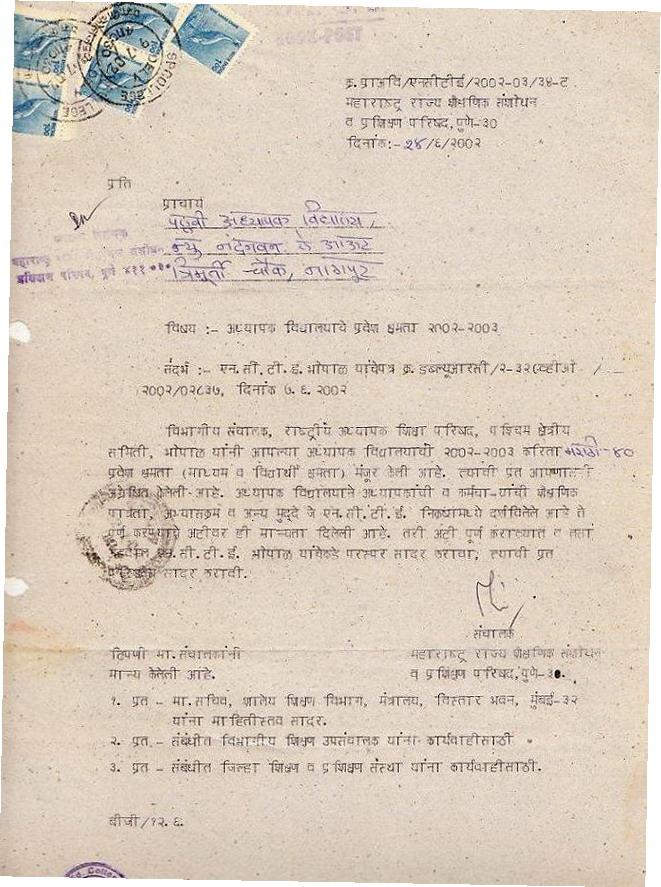 क्र.प्राअवि/एनसीटीई/2002-03/३४-ट
महाराष्ट्र राज्य शैक्षणिक संशोधन
व प्रशिक्षण परिषद, पुणे-30
दिनांक:- २४/६/2002
प्रति
प्राचार्य
अध्यापक विद्यालय,
न्यु नंदनवन ले आऊट
त्रिमूर्ती चौक, नागपूर
विषय :- अध्यापक विद्यालयाचे प्रवेश क्षमता २००२-2003
संदर्भ :- एन.सी.टी.ई.भोपाळ यांचेपत्र क्र.डब्ल्यूआरसी/२-३२
2002/02८३७, दिनांक ७.६.२००२
विभागीय संचालक, राष्ट्रीय अध्यापक शिक्षा परिषद, पश्चिम क्षेत्रीय
समिती, भोपाळ यांनी आपल्या अध्यापक विद्यालयाची २००२-२००३ करिता मराठी-४०
प्रवेश क्षमता (माध्यम व विद्यार्थी क्षमता) मंजूर केली आहे. त्याची प्रत आपणाली
अग्रेषित केलेली आहे. अध्यापक विद्यालयाने अध्यापकांची व कर्मचा-यांची शैक्षणिक
पात्रता, अभ्यासक्रम व अन्य मुद्दे जे एन.सी.टी.ई. निकषामध्ये दर्शविलेले आहे ते
पूर्ण करण्याचे अटीवर ही मान्यता दिलेली आहे. तरी अटी पूर्ण कराव्यात व तसा
अहवाल एन.सी.टी.ई. भोपाळ यांचेकडे परस्पर सादर करावा, त्याची प्रत
सादर करावी.
संचालक
टिपणी मा.संचालकांनी
महाराष्ट्र राज्य शैक्षणिक संशोधन
मान्य केलेली आहे.
व प्रशिक्षण परिषद,पुणे-३०.
१. प्रत - मा.सचिव, शालेय शिक्षण विभाग, मंत्रालय, विस्तार भवन, मुंबई-३२
यांना माहितीस्तव सादर.
२. प्रत - संबंधीत विभागीय शिक्षण उपसंचालक यांना कार्यवाहीसाठी
३. प्रत - संबंधीत जिल्हा शिक्षण व प्रशिक्षण संस्था यांना कार्यवाहीसाठी.
बीजी/१२.६.